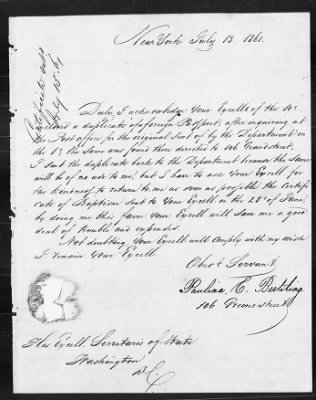 New York July 13 1861.
Certificate
July 15th
Duly I acknowledge your Excells of the 10th
enclosed a duplicate of a foreign Passport, after inquiring at
the Post office for the original send of by the Department on
the 1st the same was found then directed to 106 Grand street.
I sent the duplicate back to the Department because the same
will be of no use to me, but I have to ask Your Excell for
the kindness to return to me as soon as possible the Certifi
cate of Baptism sent to Your Excell on the 28th of June,
by doing me this favor Your Excell will save me a good
deal of trouble and expenses.
Not doubting Your Excell will comply with my wish
I remain Your Excell
Obed t Servant
Paulina E.
106 Greene street
His Excell Secretaris of State
Washington
D. C.